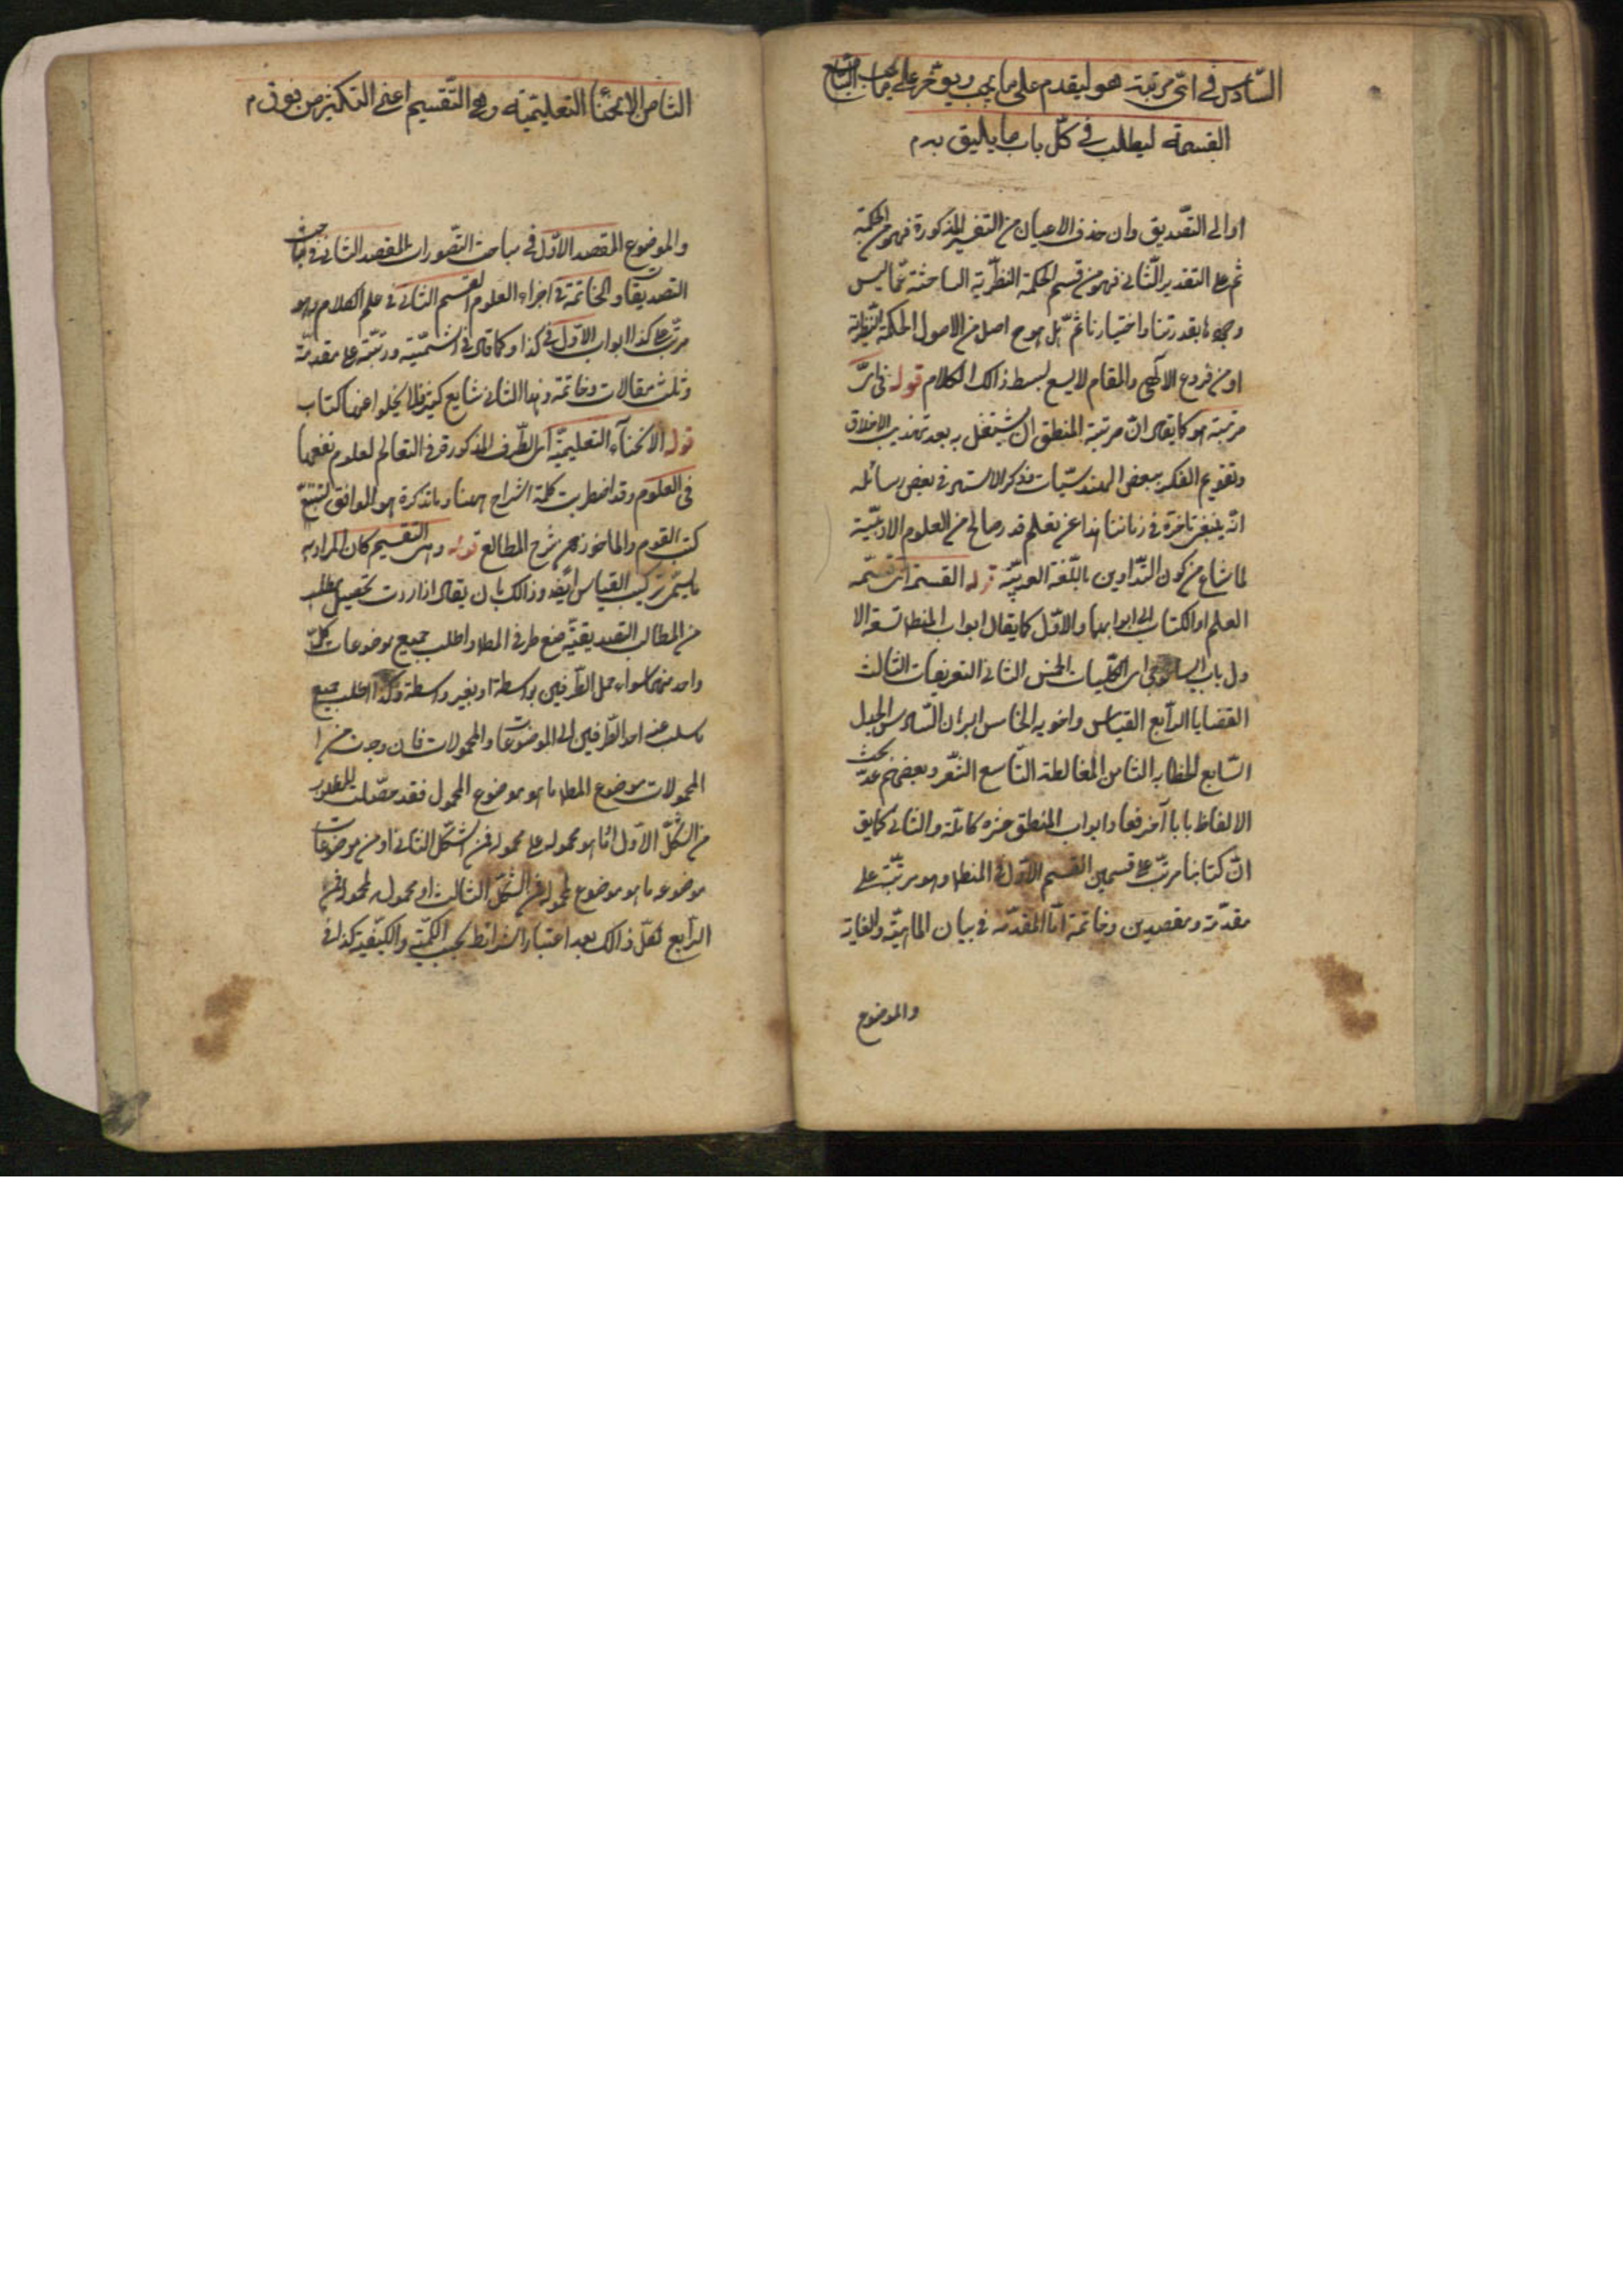 السّادس في ايّ مرتبة هو ليقدم على ما يجب ويؤخّر على ما يجب السّابع
القسمة ليطلب في كلّ باب ما يليق به م
او الى التصديق وان حذف الاعيان من التفسير المذكورة فهو من الحكمة
ثم على التقدير الثّانى فهو من قسم الحكمة النظريّة الباحثة عمّا ليس
وجودها بقدرتنا واختيارنا ثمّ هل هو ح اصل من الاصول الحكمة النظرية
او من فروع الالهى والمقام لا يسع لبسط ذالك الكلام قوله فى اىّ
مرتبة هو كما يقال انّ مرتبة المنطق ان يشتغل به بعد تهذيب الاخلاق
وتقويم الفكر ببعض الهندسيّات وذكر الاستاد فى بعض رسائله
انّه ينبغى تاخره فى زماننا هذا عن تعلم قدر صالح من العلوم الادبيّة
لما شاع من كون التّداوين باللّغة العربيّة قوله القسمة اى قسمة
العلم او الكتاب الى ابوابهما والاوّل كما يقال ابواب المنط تسعة الا
ول باب ايساغوجى اى الكلّيات الخمس الثانى التعريفات الثالث
القضايا الرّابع القياس واخويه الخامس البرهان السّادس الجدل
السّابع الخطابه الثامن المغالطة التّاسع الشّعر وبعضهم عدّ بحث
الالفاظ بابا آخر فعاد ابواب المنطق عشرة كاملة والثانى كما يق
انّ كتابنا مرتّب على قسمين القسم الاوّل فى المنط وهو مرتّب على
مقدّمة ومقصدين وخاتمة امّا المقدّمه فى بيان الماهيّة والغاية
والموضوع
الثامن الانحاء التعليميّة وهى التّقسيم اعنى التكثير من فوق م
والموضوع المقصد الاوّل فى مباحث التّصورات المقصد الثانى فى مباحث
التصديقات والخاتمة فى اجزاء العلوم القسم الثانى فى علم الكلام وهو
مرتّب على كذا ابواب الاوّل فى كذا وكما قال فى الشمسّية ورتّبته على مقدمة
وثلث مقالات وخاتمة وهذا الثانى شايع كثير فلا يخلوا عنها كتاب
قوله الانحاء التعليميّة اى الطّرف المذكورة فى التعاليم لعموم نفعها
فى العلوم وقد اضطربت كلمة الشراح ههنا وما تذكرة هو الموافق لتتبّع
كتب القوم والماخوذ من شرح المطالع قوله وهى التقسيم كان المراد به
ما يسمّى تركيب القياس ايضا وذالك بان يقال اذا اردت تحصيل مطلب
من المطالب التصديقيّة ضع طرفى المط واطلب جميع موضوعات كلّ
واحد منهما سواء حمل الطّرفين بواسطة او بغير واسطة وكذا اطلب جميع
ما سلب عنه احد الطّرفين الى الموضوعات والمحمولات فان وجدت من
المحمولات موضوع المط ما هو موضوع المحمول فقد حصّلت المطلوب
من الشكل الاوّل او ما هو محمول على محموله فمن الشكل الثانى او من موضوعات
موضوعه ما هو موضوع لمحموله فمن الشكل الثالث او محمول لمحموله فمن
الرّابع كلّ ذالك بعد اعتبار الشرائط بحسب الكمّية والكيفيّة كذا فى